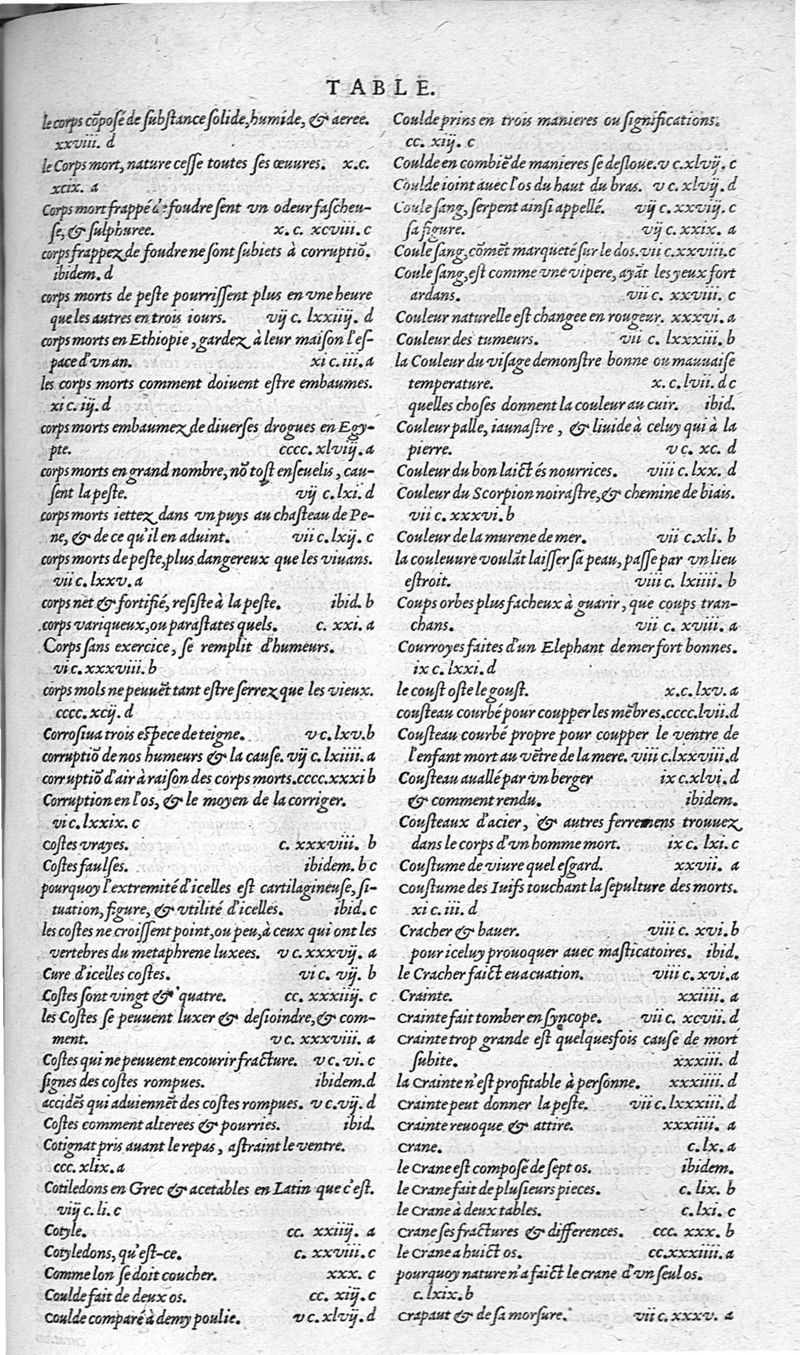 TABLE.
le corps cõposé de substance solide, humide, & aeree.
xxviii. d
le Corps mort, nature cesse toutes ses œuures. x.c.
xcix. a
Corps mort frappé de foudre sent vn odeur fascheu-
se, & sulphuree. x. c. xcviii. c
corps frappez de foudre ne sont subiets à corruptiõ.
ibidem. d
corps morts de peste pourrissent plus en vne heure
que les autres en trois iours. vij c. lxxiiij. d
corps morts en Ethiopie, gardez à leur maison l'es-
pace d'vn an. xi c. iii. a
les corps morts comment doiuent estre embaumes.
xi c. iij. d
corps morts embaumez de diuerses drogues en Egy-
pte. cccc. xlviij. a
corps morts en grand nombre, nõ tost enseuelis, cau-
sent la peste. vij c. lxi. d
corps morts iettez dans vn puys au chasteau de Pe-
ne, & de ce qu'il en aduint. vii c. lxij. c
corps morts de peste, plus dangereux que les viuans.
vii c. lxxv. a
corps net & fortifié, resiste à la peste. ibid. b
corps variqueux, ou parastates quels. c. xxi. a
Corps sans exercice, se remplit d'humeurs.
vi c. xxxviii. b
corps mols ne peuuẽt tant estre serrez que les vieux.
cccc. xcij. d
Corrosiua trois espece de teigne. v c. lxv. b
corruptiõ de nos humeurs & la cause. vij c. lxiiii. a
corruptiõ d'air à raison des corps morts. cccc. xxxi b
Corruption en l'os, & le moyen de la corriger.
vi c. lxxix. c
costes vrayes. c. xxxviii. b
Costes faulses. ibidem. b c
pourquoy l'extremité d'icelles est cartilagineuse, si-
tuation, figure, & vtilité d'icelles. ibid. c
les costes ne croissent point, ou peu, à ceux qui ont les
vertebres du metaphrene luxees. v c. xxxvij. a
Cure d'icelles costes. vi c. vij. b
Costes sont vingt & quatre. cc. xxxiiij. c
les Costes se peuuent luxer & desioindre, & com-
ment. v c. xxxviii. a
Costes qui ne peuuent encourir fracture. v c. vi. c
signes des costes rompues. ibidem. d
accidẽs qui aduiennẽt des costes rompues. v c. vij. d
Costes comment alterees & pourries. ibid.
Cotignat pris auant le repas, astraint le ventre.
ccc. xlix. a
Cotiledons en Grec & acetables en Latin que c'est.
viij c. li. c
Cotyle. cc. xxiiij. a
Cotyledons, qu'est-ce. c. xxviii. c
Comme lon se doit coucher. xxx. c
Coulde fait de deux os. cc. xij. c
Coulde comparé à demy poulie. v c. xlvij. d
Coulde prins en trois manieres ou significations.
cc. xij. c
Coulde en combiẽ de manieres se desloue. v c. xlvij. c
Coulde ioint auec l'os du haut du bras. v c. xlvij. d
Coule sang, serpent ainsi appellé. vij c. xxviij. c
sa figure. vij c. xxix. a
Coule sang, cõmẽt marqueté sur le dos. vii c. xxviii. c
Coule sang, est comme vne vipere, ayãt les yeux fort
ardans. vii c. xxviii. c
Couleur naturelle est changee en rougeur. xxxvi. a
Couleur des tumeurs. vii c. lxxxiii. b
la Couleur du visage demonstre bonne ou mauuaise
temperature. x. c. lvii. d c
quelles choses donnent la couleur au cuir. ibid.
Couleur palle, iaunastre, & liuide à celuy qui à la
pierre. v c. xc. d
Couleur du bon laict és nourrices. viii c. lxx. d
Couleur du Scorpion noirastre, & chemine de biais.
vii c. xxxvi. b
Couleur de la murene de mer. vii c. xli. b
la couleuure voulãt laisser sa peau, passe par vn lieu
estroit. viii c. lxiiii. b
Coups orbes plus facheux à guarir, que coups tran-
chans. vii c. xviii. a
Courroyes faites d'un Elephant de mer fort bonnes.
ix c. lxxi. d
le coust oste le goust. x. c. lxv. a
cousteau courbé pour coupper les mẽbres. cccc. lvii. d
Cousteau courbé propre pour coupper le ventre de
l'enfant mort au vẽtre de la mere. viii c. lxxviii. d
Cousteau auallé par vn berger ix c. xlvi. d
& comment rendu. ibidem.
Cousteaux d'acier, & autres ferremens trouuez
dans le corps d'vn homme mort. ix c. lxi. c
Coustume de viure quel esgard. xxvii. a
coustume des Iuifs touchant la sepulture des morts.
xi c. iii. d
Cracher & bauer. viii c. xvi. b
pour iceluy prouoquer auec masticatoires. ibid.
le Cracher faict euacuation. viii c. xvi. a
Crainte. xxiiii. a
crainte fait tomber en syncope. vii c. xcvii. d
crainte trop grande est quelquesfois cause de mort
subite. xxxiii. d
la crainte n'est profitable à personne. xxxiiii. d
crainte peut donner la peste. vii c. lxxxiii. d
crainte reuoque & attire. xxxiiii. a
crane. c. lx. a
le crane est composé de sept os. ibidem.
le crane fait de plusieurs pieces. c. lix. b
le crane à deux tables. c. lxi. c
crane ses fractures & differences. ccc. xxx. b
le crane a huict os. cc. xxxiiii. a
pourquoy nature n'a faict le crane d'vn seul os.
c. lxix. b
crapaut & de sa morsure. vii c. xxxv. a